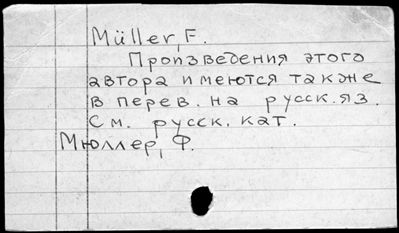 Müller, F.
Произведения этого
автора имеются также
в перев. на русск. яз.
См. русск. кат.
Мюллер, Ф.